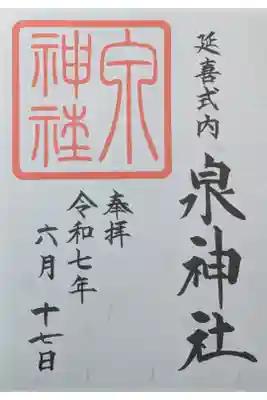 延喜式内
泉神社
奉拝
令和七年
六月十七日
泉
神社